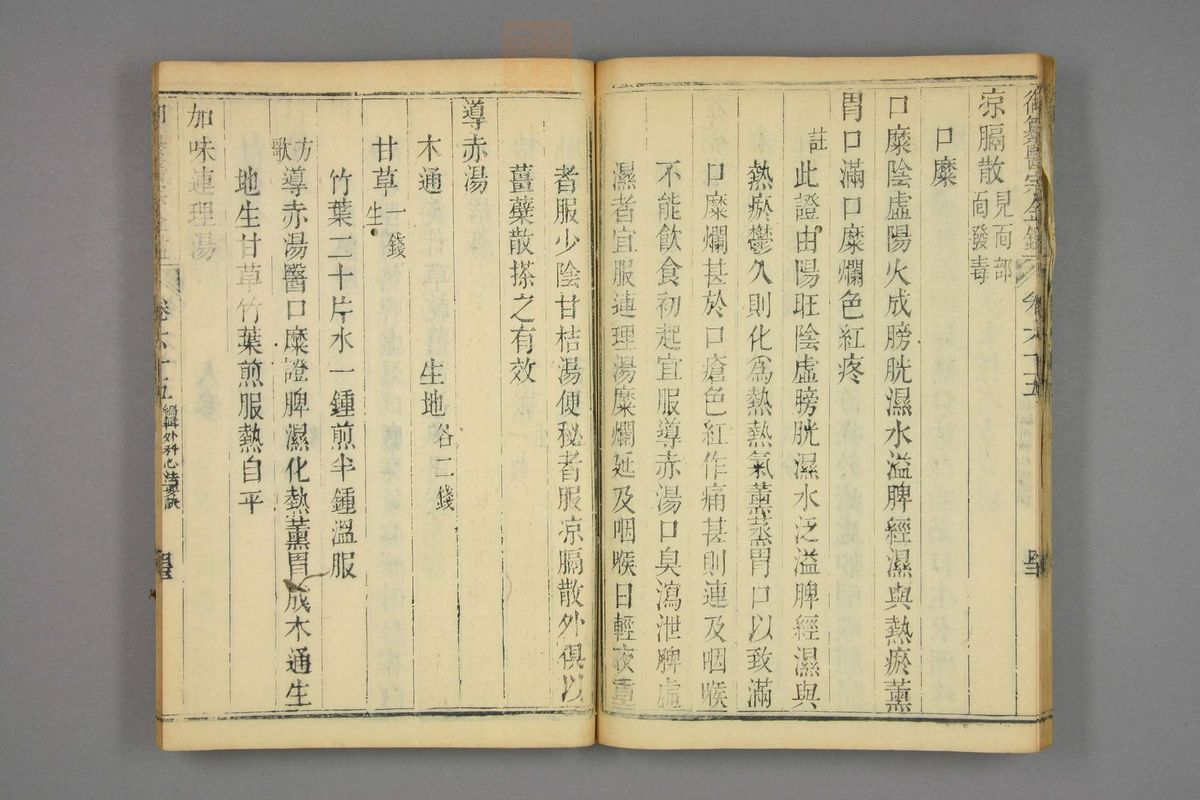 御纂醫宗金鑑 卷六十五
涼膈散見面部面發毒
口糜
口糜陰虛陽火成膀胱濕水溢脾經濕與熱瘀薰
胃口滿口糜爛色紅疼
註此證由陽旺陰虛膀胱濕水泛溢脾經濕與
熱瘀鬱久則化為熱熱氣薰蒸胃口以致滿
口糜爛甚於口瘡色紅作痛甚則連及咽喉
不能飲食初起宜服導赤湯口臭瀉泄脾虛
濕者宜服連理湯糜爛延及咽喉日輕夜重
者服少陰甘桔湯便秘者服涼膈散外俱以
薑蘗散搽之有效
導赤湯
木通 生地各二錢
甘草一錢生
竹葉二十片水一鍾煎半鍾溫服
方歌導赤湯醫口糜證脾濕化熱薰胃成木通生
地生甘草竹葉煎服熱自平
加味連理湯
卷六十五編輯外科心法要訣